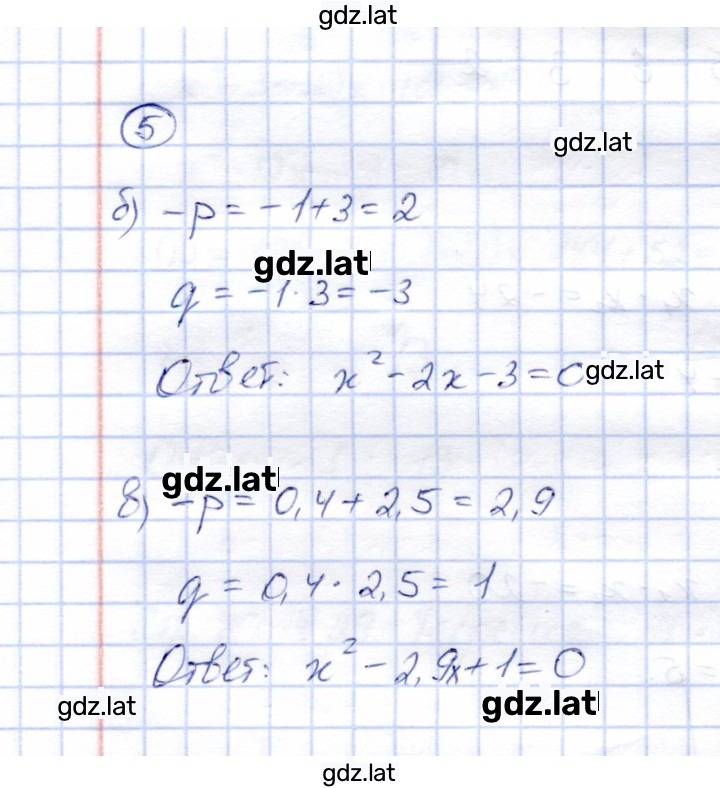 gdz.lat
5
gdz.lat
б) -p = -1+3 = 2
gdz.lat
q = -1·3 = -3
Ответ: x² - 2x - 3 = 0
gdz.lat
gdz.lat
в) -p = 0,4 + 2,5 = 2,9
q = 0,4 · 2,5 = 1
Ответ: x² - 2,9x + 1 = 0
gdz.lat
gdz.lat
gdz.lat